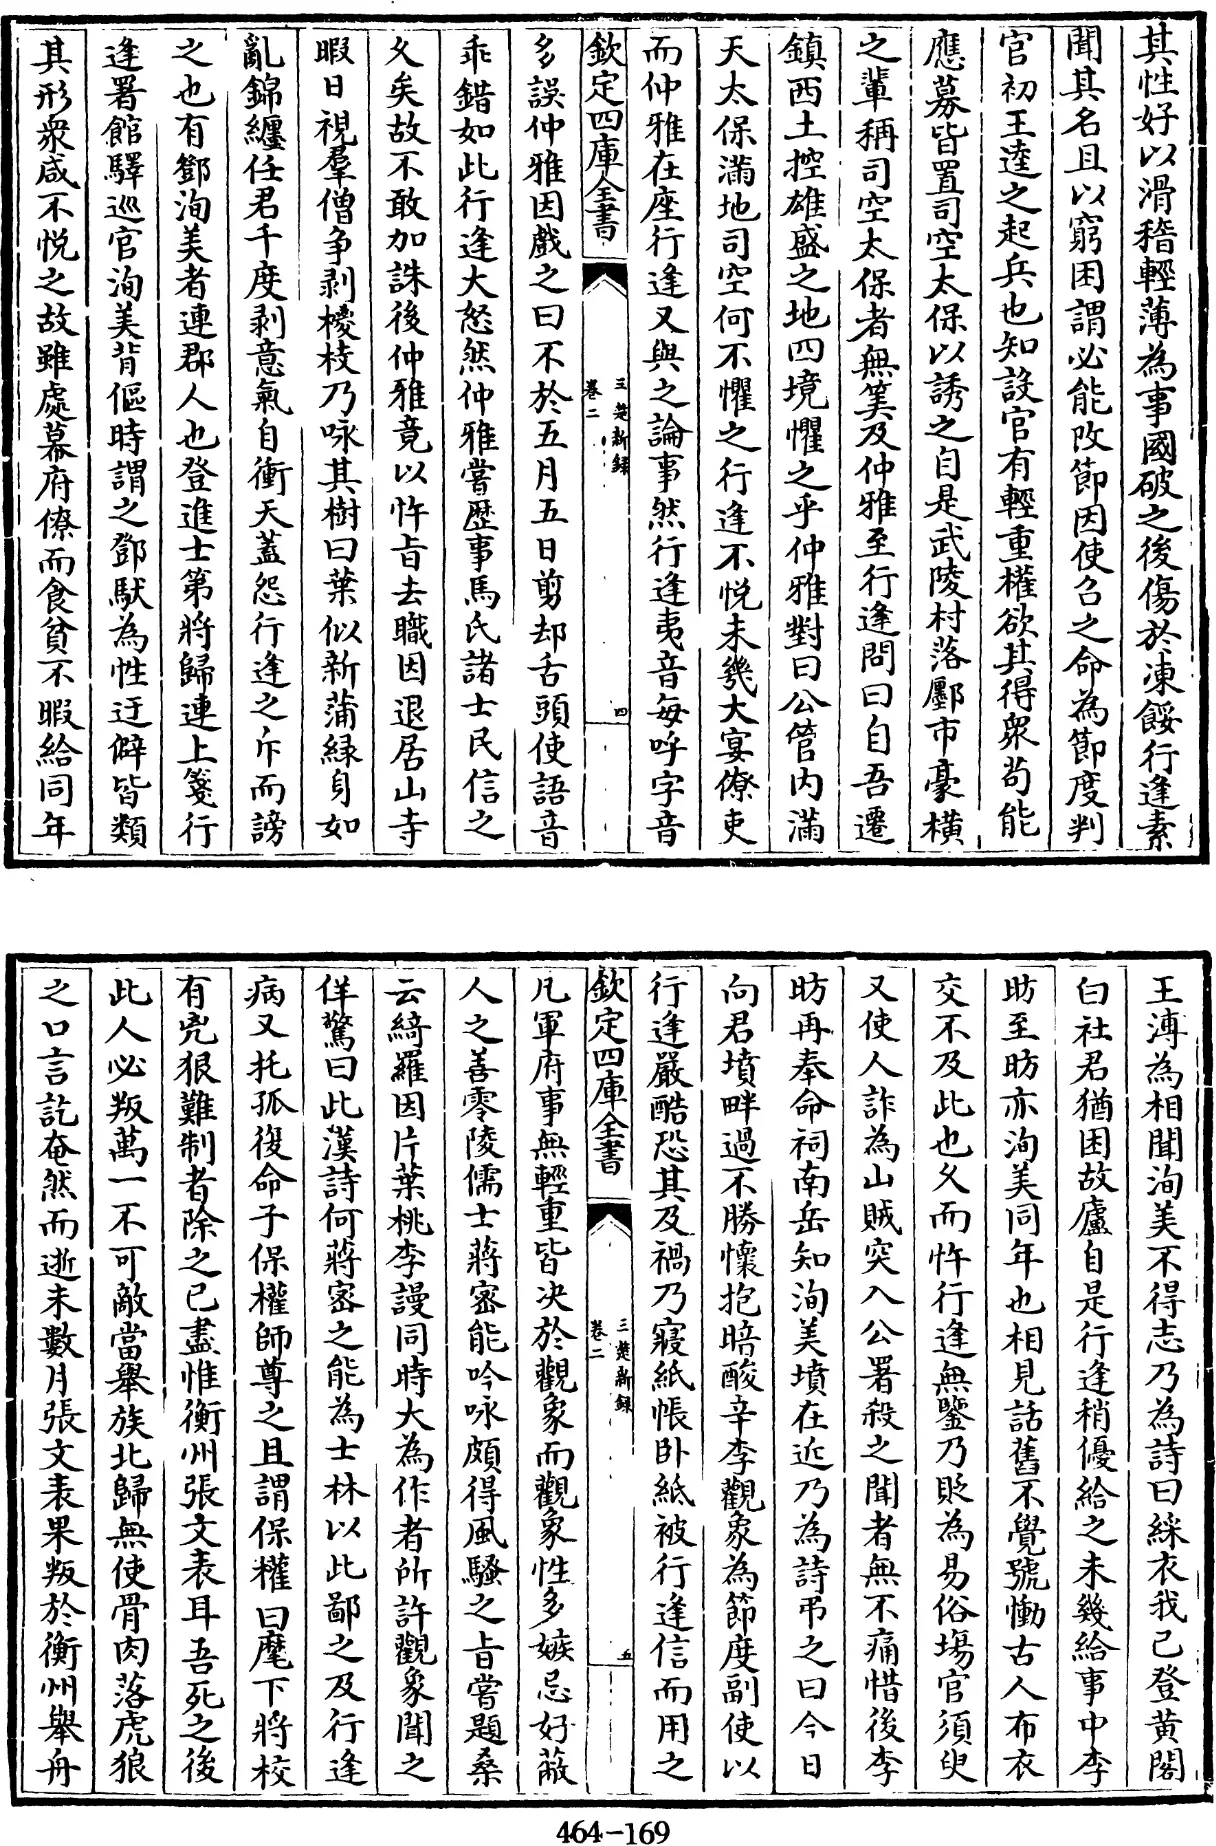 其性好以滑稽輕薄為事國破之後傷於凍餒行逢素
聞其名且以窮困謂必能改節因使召之命為節度判
官初王逵之起兵也知設官有輕重權欲其得衆茍能
應募皆置司空太保以誘之自是武陵村落鄽市豪橫
之輩稱司空太保者無筭及仲雅至行逢問曰自吾遷
鎮西土控雄盛之地四境懼之乎仲雅對曰公管内滿
天太保滿地司空何不懼之行逢不悦未幾大宴僚吏
而仲雅在座行逢又與之論事然行逢夷音每呼字音
欽定四庫全書
三楚新録
卷二
四
多誤仲雅因戲之曰不於五月五日剪却舌頭使語音
乖錯如此行逢大怒然仲雅嘗歴事馬氏諸士民信之
久矣故不敢加誅後仲雅竟以忤㫖去職因退居山寺
暇日視羣僧争剥椶枝乃咏其樹曰葉似新蒲緑身如
亂錦纒任君千度剥意氣自衝天蓋怨行逢之斥而謗
之也有鄧洵美者連郡人也登進士第將歸連上箋行
逢署館驛巡官洵美背傴時謂之鄧䭾為性迂僻皆類
其形衆咸不悦之故雖處幕府僚而食貧不暇給同年
王溥為相聞洵美不得志乃為詩曰綵衣我已登黄閣
白社君猶困故廬自是行逢稍優給之未幾給事中李
昉至昉亦洵美同年也相見話舊不覺號慟古人布衣
交不及此也久而忤行逢無鑒乃貶為易俗場官須臾
又使人詐為山賊突入公署殺之聞者無不痛惜後李
昉再奉命祠南岳知洵美墳在近乃為詩弔之曰今日
向君墳畔過不勝懷抱暗酸辛李觀象為節度副使以
行逢嚴酷恐其及禍乃寢紙帳卧紙被行逢信而用之
欽定四庫全書
三楚新録
卷二
五
凡軍府事無輕重皆决於觀象而觀象性多嫉忌好蔽
人之善零陵儒士蔣宻能吟咏頗得風騷之㫖嘗題桑
云綺羅因片葉桃李謾同時大為作者所許觀象聞之
佯驚曰此漢詩何蔣宻之能為士林以此鄙之及行逢
病又托孤復命子保權師尊之且謂保權曰麾下將校
有兇狠難制者除之已盡惟衡州張文表耳吾死之後
此人必叛萬一不可敵當舉族北歸無使骨肉落虎狼
之口言訖奄然而逝未數月張文表果叛於衡州舉舟
464-169